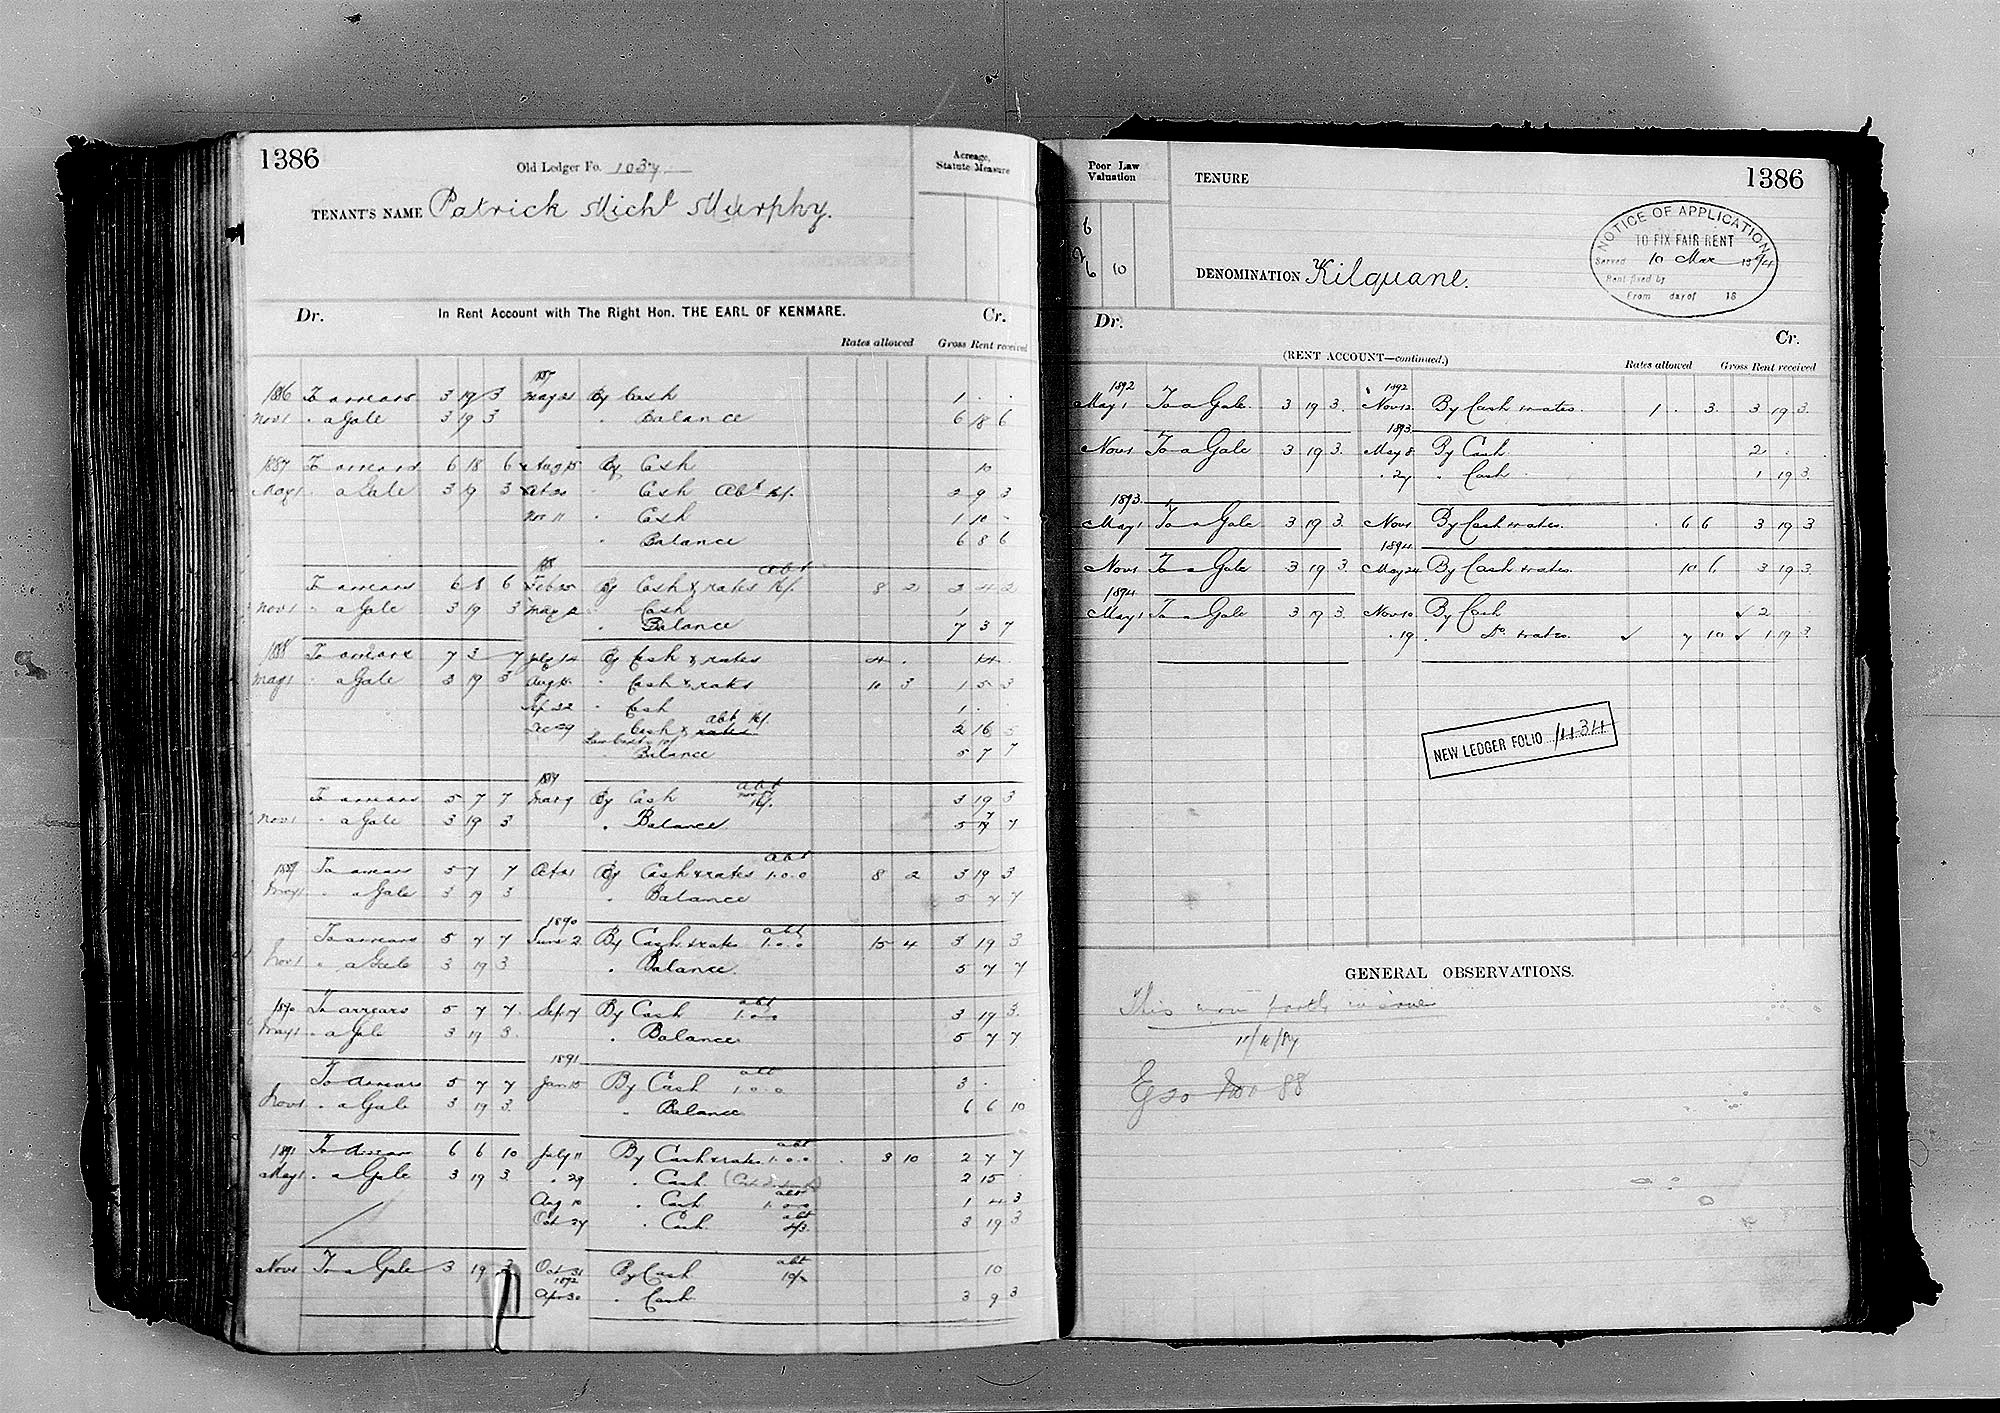 1386
Old Ledger Fo. 1037
Acreage, Statute Measure
TENANT'S NAME Patrick Michl Murphy.
Dr. In Rent Account with The Right Hon. THE EARL OF KENMARE. Cr.
Rates allowed Gross Rent received
1887
1886 To arrears 3 19 3 May 21 By Cash 1 . .
Nov 1 " a Gale 3 19 3 " Balance 6 18 6
1887 To arrears 6 18 6 Aug 15 By Cash 10
May 1 " a Gale 3 19 3 Oct 20 " Cash Abt 16/. 2 9 3
Nov 11 " Cash 1 10 -
" Balance 6 8 6
1888 abt
To arrears 6 8 6 Feb 25 By Cash & rates 16/. 8 2 2 4 2
Nov 1 " a Gale 3 19 3 May 12 " Cash 1
" Balance 7 3 7
1888 To arrears 7 3 7 July 14 By Cash & rates 4 . 14 .
May 1 " a Gale 3 19 3 Aug 15 " Cash & rates 10 3 1 5 3
Sep 22 " Cash 1 . .
Dec 29 " Cash & rates abt 16/. 2 16 5
Balance 5 7 7
1889 abt
To arrears 5 7 7 Mar 9 By Cash 16/. 3 19 3
Nov 1 " a Gale 3 19 3 " Balance 5 7 7
abt
1889 To arrears 5 7 7 Oct 21 By Cash & rates 1.0.0 8 2 3 19 3
May 1 " a Gale 3 19 3 " Balance 5 7 7
1890 abt
To arrears 5 7 7 June 2 By Cash & rates 1.0.0 15 4 3 19 3
Nov 1 " a Gale 3 19 3 " Balance. 5 7 7
abt
1890 To arrears 5 7 7 Sep 17 By Cash 1.0.0 3 19 3
May 1 " a Gale 3 19 3 " Balance 5 7 7
1891 abt
To Arrears 5 7 7 Jan 15 By Cash 1.0.0 3 .
Nov 1 " a Gale 3 19 3 " Balance 6 6 10
abt
1891 To Arrears 6 6 10 July 11 By Cash & rates 1.0.0 3 10 2 7 7
May 1 " a Gale 3 19 3 " 29 " Cash 2 15
abt
Aug 10 " Cash 1.0.0 1 4 3
Oct 27 " Cash abt 4/3. 3 19 3
Nov 1 To a Gale 3 19 3 Oct 31 By Cash abt 10/- 10
1892
Apr 30 " Cash 3 9 3
Poor Law Valuation
TENURE
1386
6
2
6 10
DENOMINATION Kilquane.
NOTICE OF APPLICATION
TO FIX FAIR RENT
Served 10 Mar 1894
Rent fixed by
From day of 18
Dr. Cr.
(RENT ACCOUNT—continued.)
Rates allowed Gross Rent received
1892 1892
May 1 To a Gale 3 19 3. Nov 12 By Cash & rates. 1 . 3. 3 19 3.
1893
Nov 1 To a Gale 3 19 3. May 8 By Cash 2 . .
" 27 " Cash 1 19 3.
1893
May 1 To a Gale 3 19 3. Nov 1 By Cash & rates. . 6 6 3 19 3
1894
Nov 1 To a Gale 3 19 3. May 24 By Cash & rates. 10 6 3 19 3.
1894
May 1 To a Gale 3 19 3. Nov 10 By Cash ✓ 2
" 19 " Do. & rates. ✓ 7 10 ✓ 1 19 3.
NEW LEDGER FOLIO 1434
GENERAL OBSERVATIONS.
This
11/11/87
88